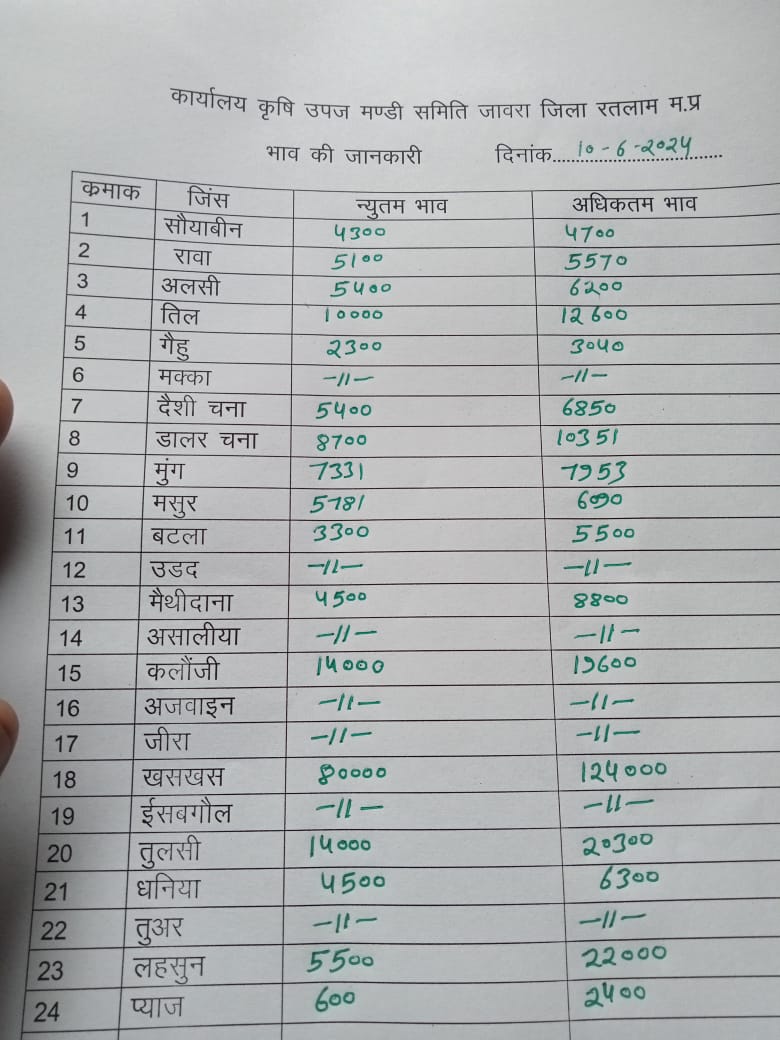 कार्यालय कृषि उपज मण्डी समिति जावरा जिला रतलाम म.प्र
भाव की जानकारी दिनांक....10-6-2024....
कमाक जिंस न्युतम भाव अधिकतम भाव
1 सौयाबीन 4300 4700
2 रावा 5100 5570
3 अलसी 5400 6200
4 तिल 10000 12600
5 गैहु 2300 3040
6 मक्का —11— —11—
7 दैशी चना 5400 6850
8 डालर चना 8700 10351
9 मुंग 7331 7953
10 मसुर 5781 6090
11 बटला 3300 5500
12 उडद —11— —11—
13 मैथीदाना 4500 8800
14 असालीया —11— —11—
15 कलौंजी 14000 19600
16 अजवाइन —11— —11—
17 जीरा —11— —11—
18 खसखस 80000 124000
19 ईसबगौल —11— —11—
20 तुलसी 14000 20300
21 धनिया 4500 6300
22 तुअर —11— —11—
23 लहसुन 5500 22000
24 प्याज 600 2400